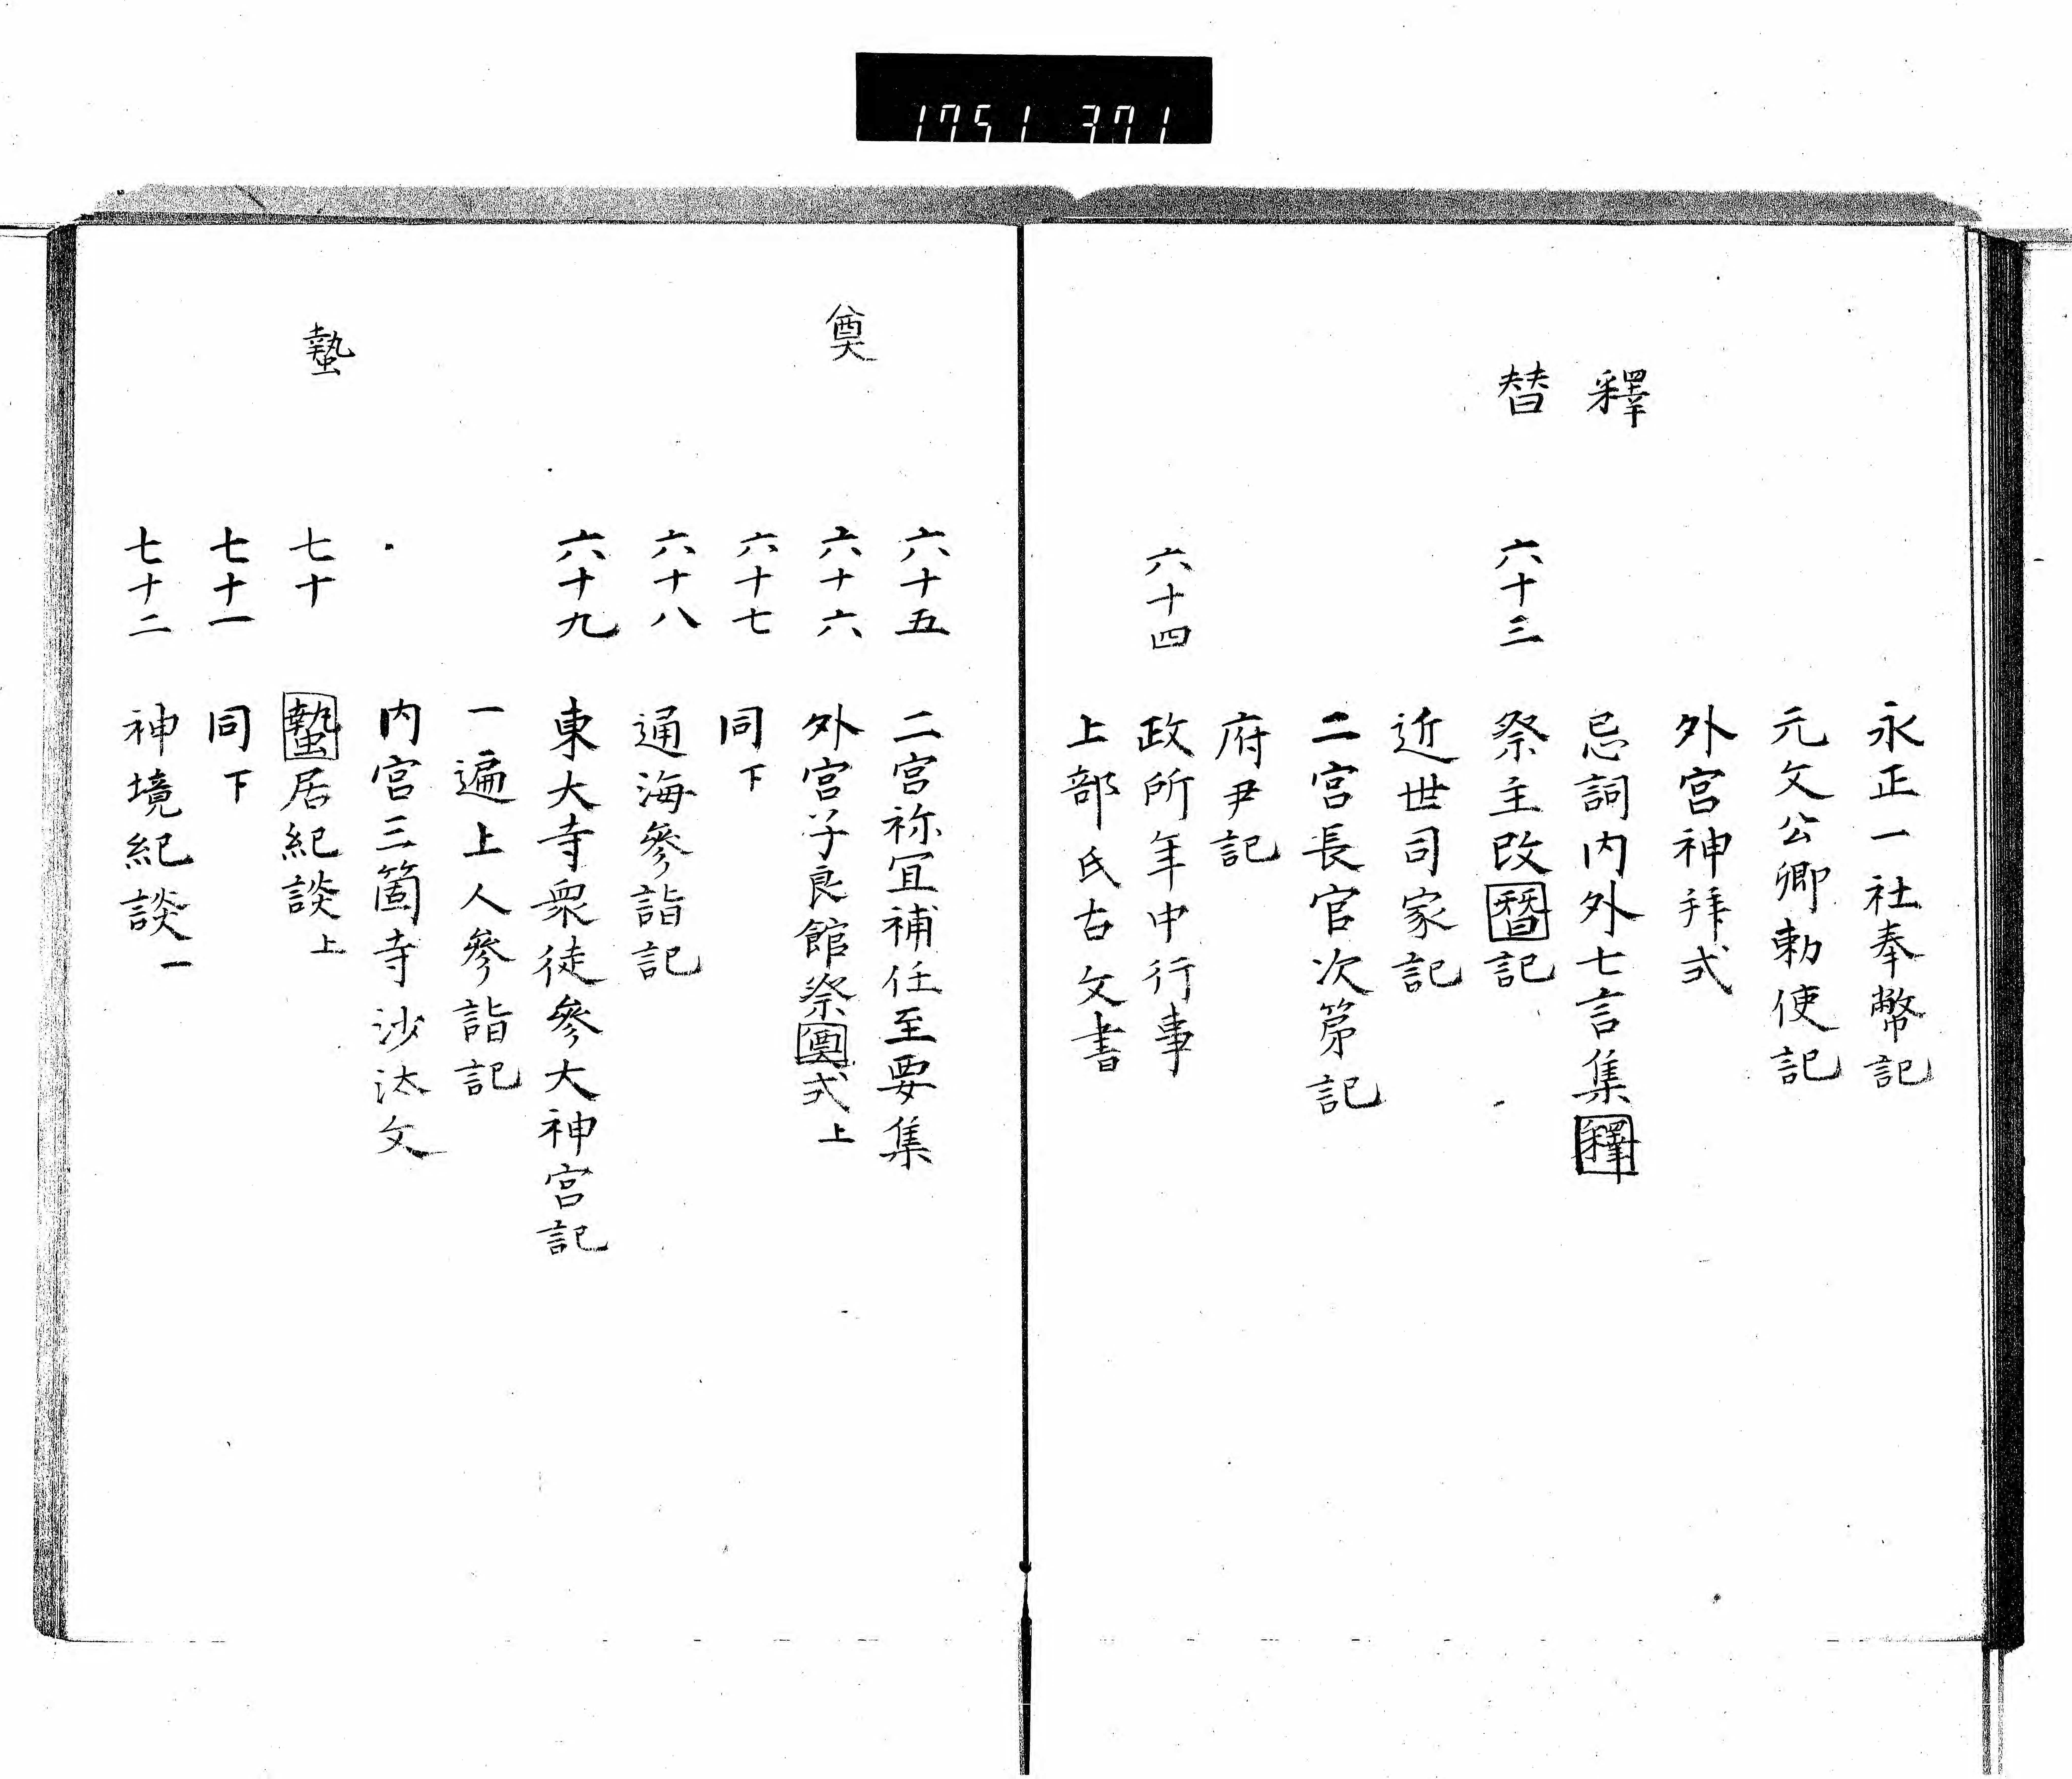 1751 371
永正一社奉幣記
元文公卿勅使記
外宮神拜式
釋
忌詞内外七言集釋
替
六十三 祭主改替記
近世司家記
二宮長官次第記
府尹記
六十四 政所年中行事
上部氏古文書
六十五 二宮祢冝補任至要集
奠
六十六 外宮子良館祭奠式上
六十七 同下
六十八 通海參詣記
六十九 東大寺衆徒參大神宮記
一遍上人參詣記
内宮三箇寺沙汰文
蟄
七十 蟄居紀談上
七十一 同下
七十二 神境紀談一